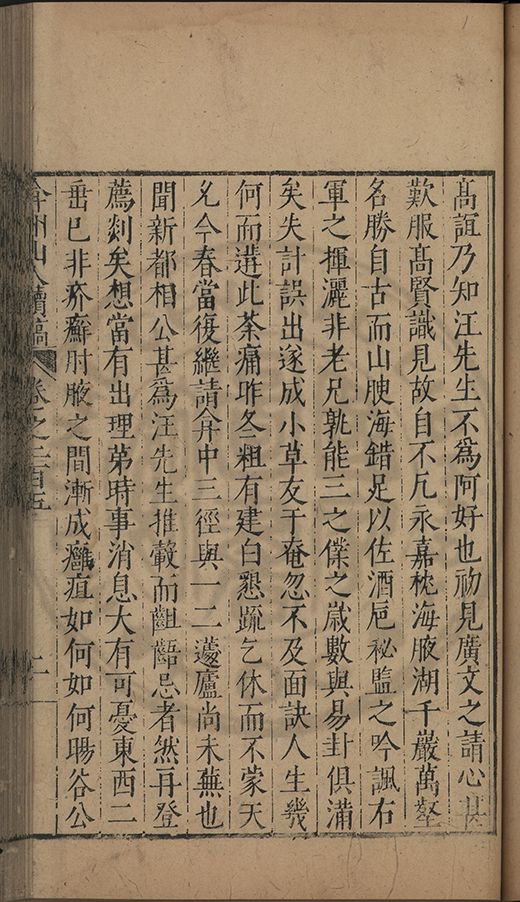 高誼乃知汪先生不爲阿好也初見廣文之請心甚
歎服高賢識見故自不凡永嘉枕海腋湖千巖萬壑
名勝自古而山腴海錯足以佐酒巵秘監之吟諷右
軍之揮灑非老兄孰能三之僕之歲數與易卦俱滿
矣失計誤出遂成小草友于奄忽不及面訣人生幾
何而遘此荼痛昨冬粗有建白懇疏乞休而不蒙天
允今春當復繼請弇中三徑與一二蘧廬尚未蕪也
聞新都相公甚爲汪先生推轂而齟齬忌者然再登
薦剡矣想當有出理第時事消息大有可憂東西二
垂已非疥癬肘腋之間漸成癰疽如何如何暘谷公
弇州山人續稿 卷之二百五 二